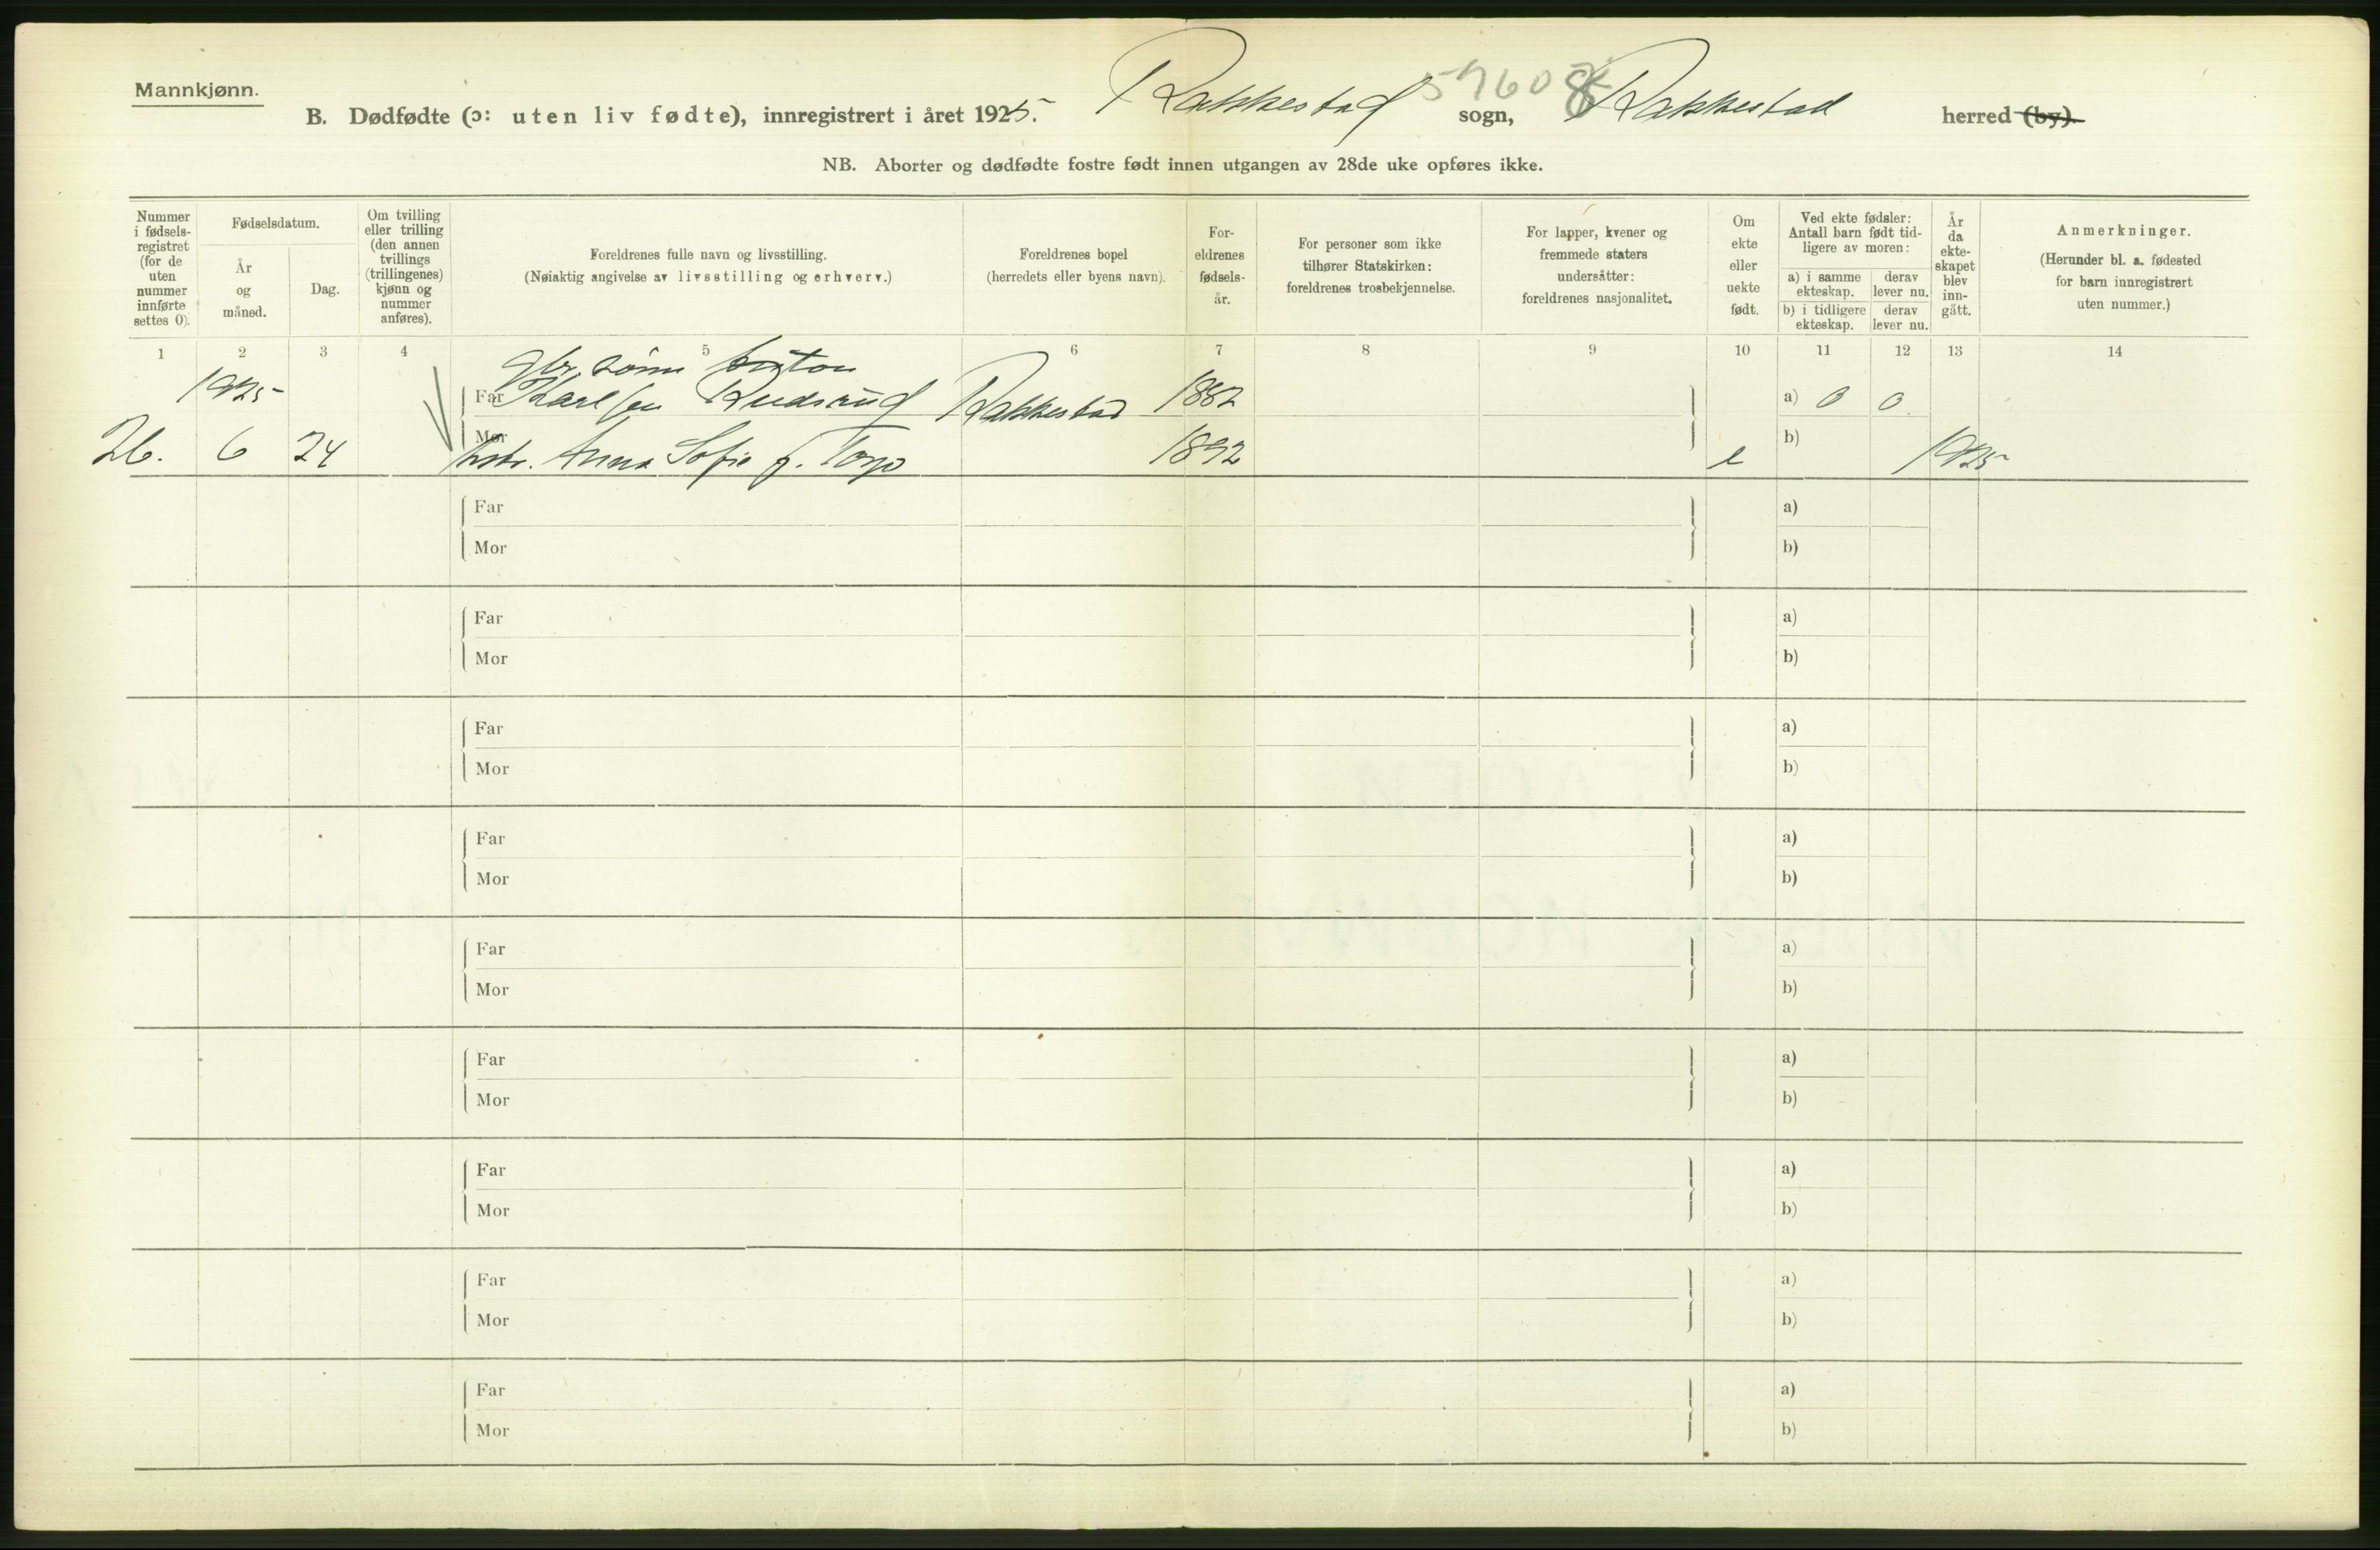 Mannkjønn.
B. Dødfødte (ɔ: uten liv fødte), innregistrert i året 1925. Rakkestad sogn, Rakkestad herred (by).
5960
8
NB. Aborter og dødfødte fostre født innen utgangen av 28de uke opføres ikke.
Nummer i fødsels-registret (for de uten nummer innførte settes 0).
Fødselsdatum.
År og måned.
Dag.
Om tvilling eller trilling (den annen tvillings (trillingenes) kjønn og nummer anføres).
Foreldrenes fulle navn og livsstilling.
(Nøiaktig angivelse av livsstilling og erhverv.)
Foreldrenes bopel
(herredets eller byens navn).
For-eldrenes fødsels-år.
For personer som ikke tilhører Statskirken: foreldrenes trosbekjennelse.
For lapper, kvener og fremmede staters undersåtter: foreldrenes nasjonalitet.
Om ekte eller uekte født.
Ved ekte fødsler: Antall barn født tid-ligere av moren:
a) i samme ekteskap.
derav lever nu.
b) i tidligere ekteskap.
derav lever nu.
År da ekte-skapet blev inn-gått.
Anmerkninger.
(Herunder bl. a. fødested for barn innregistrert uten nummer.)
1 2 3 4 5 6 7 8 9 10 11 12 13 14
Gbr. sønn Anton
1925 Far Karlsen Rudsrud Rakkestad 1882 a) 0 0
Mor b)
26. 6 24 hstr. Anna Sofie f. Torp 1892 e 1925
Far a)
Mor b)
Far a)
Mor b)
Far a)
Mor b)
Far a)
Mor b)
Far a)
Mor b)
Far a)
Mor b)
Far a)
Mor b)
Far a)
Mor b)
Far a)
Mor b)